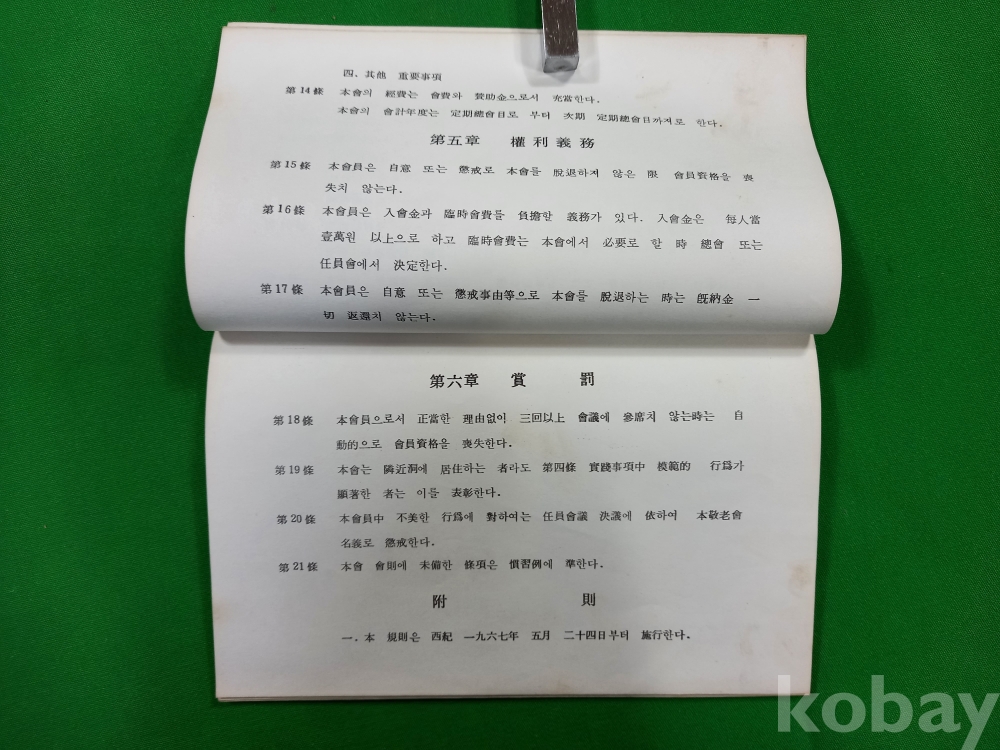 四. 其他 重要事項
第14條 本會의 經費는 會費와 贊助金으로서 充當한다.
本會의 會計年度는 定期總會日로 부터 次期 定期總會日까지로 한다.
第五章 權利義務
第15條 本會員은 自意 또는 懲戒로 本會를 脫退하지 않은 限 會員資格을 喪
失치 않는다.
第16條 本會員은 入會金과 臨時會費를 負擔할 義務가 있다. 入會金은 每人當
壹萬원 以上으로 하고 臨時會費는 本會에서 必要로 할 時 總會 또는
任員會에서 決定한다.
第17條 本會員은 自意 또는 懲戒事由等으로 本會를 脫退하는 時는 旣納金 一
切 返還치 않는다.
第六章 賞 罰
第18條 本會員으로서 正當한 理由없이 三回以上 會議에 參席치 않는時는 自
動的으로 會員資格을 喪失한다.
第19條 本會는 隣近洞에 居住하는 者라도 第四條 實踐事項中 模範的 行爲가
顯著한 者는 이를 表彰한다.
第20條 本會員中 不美한 行爲에 對하여는 任員會議 決議에 依하여 本敬老會
名義로 懲戒한다.
第21條 本會 會則에 未備한 條項은 慣習例에 準한다.
附 則
一. 本 規則은 西紀 一九六七年 五月 二十四日부터 施行한다.
kobay